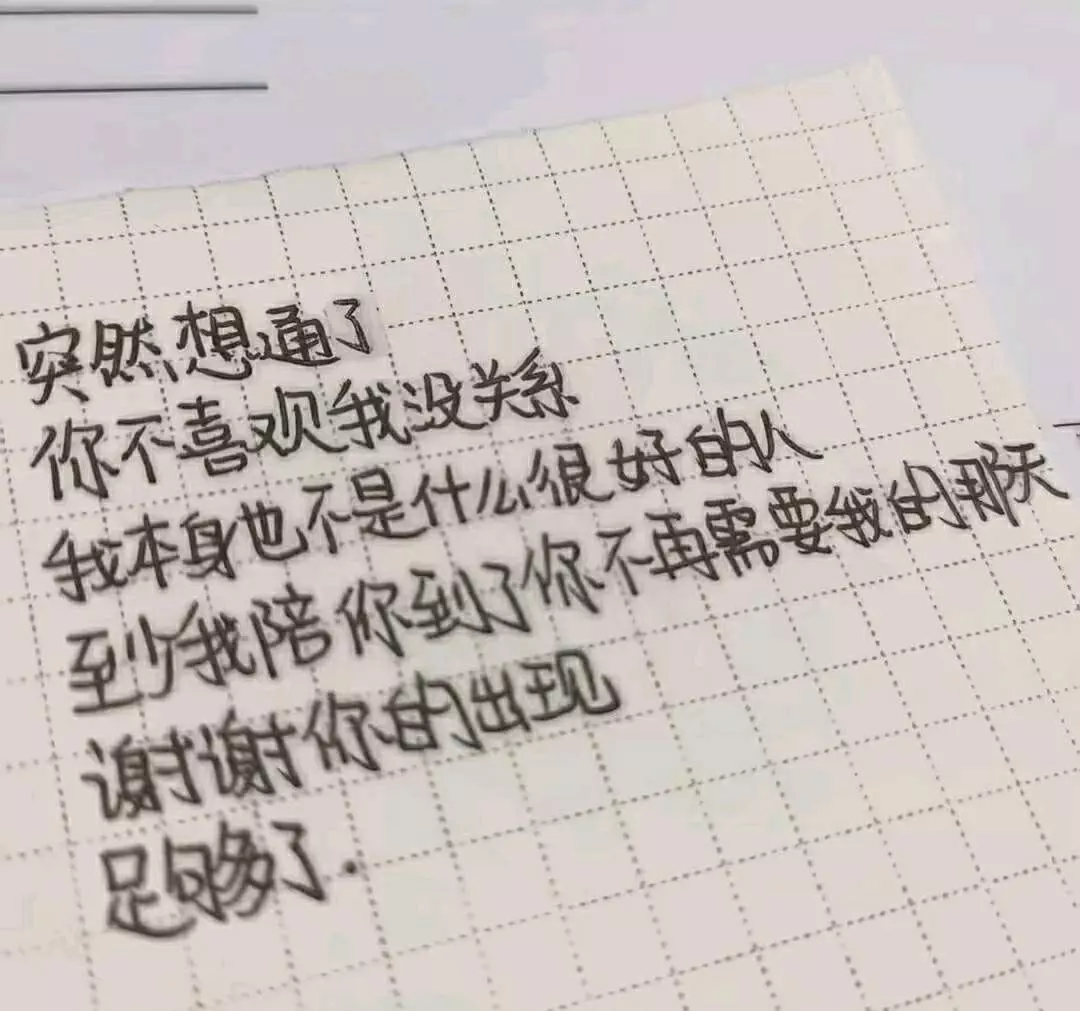 突然想通了
你不喜欢我没关系
我本身也不是什么很好的人
至少我陪你到了你不再需要我的那天
谢谢你的出现
足够了.